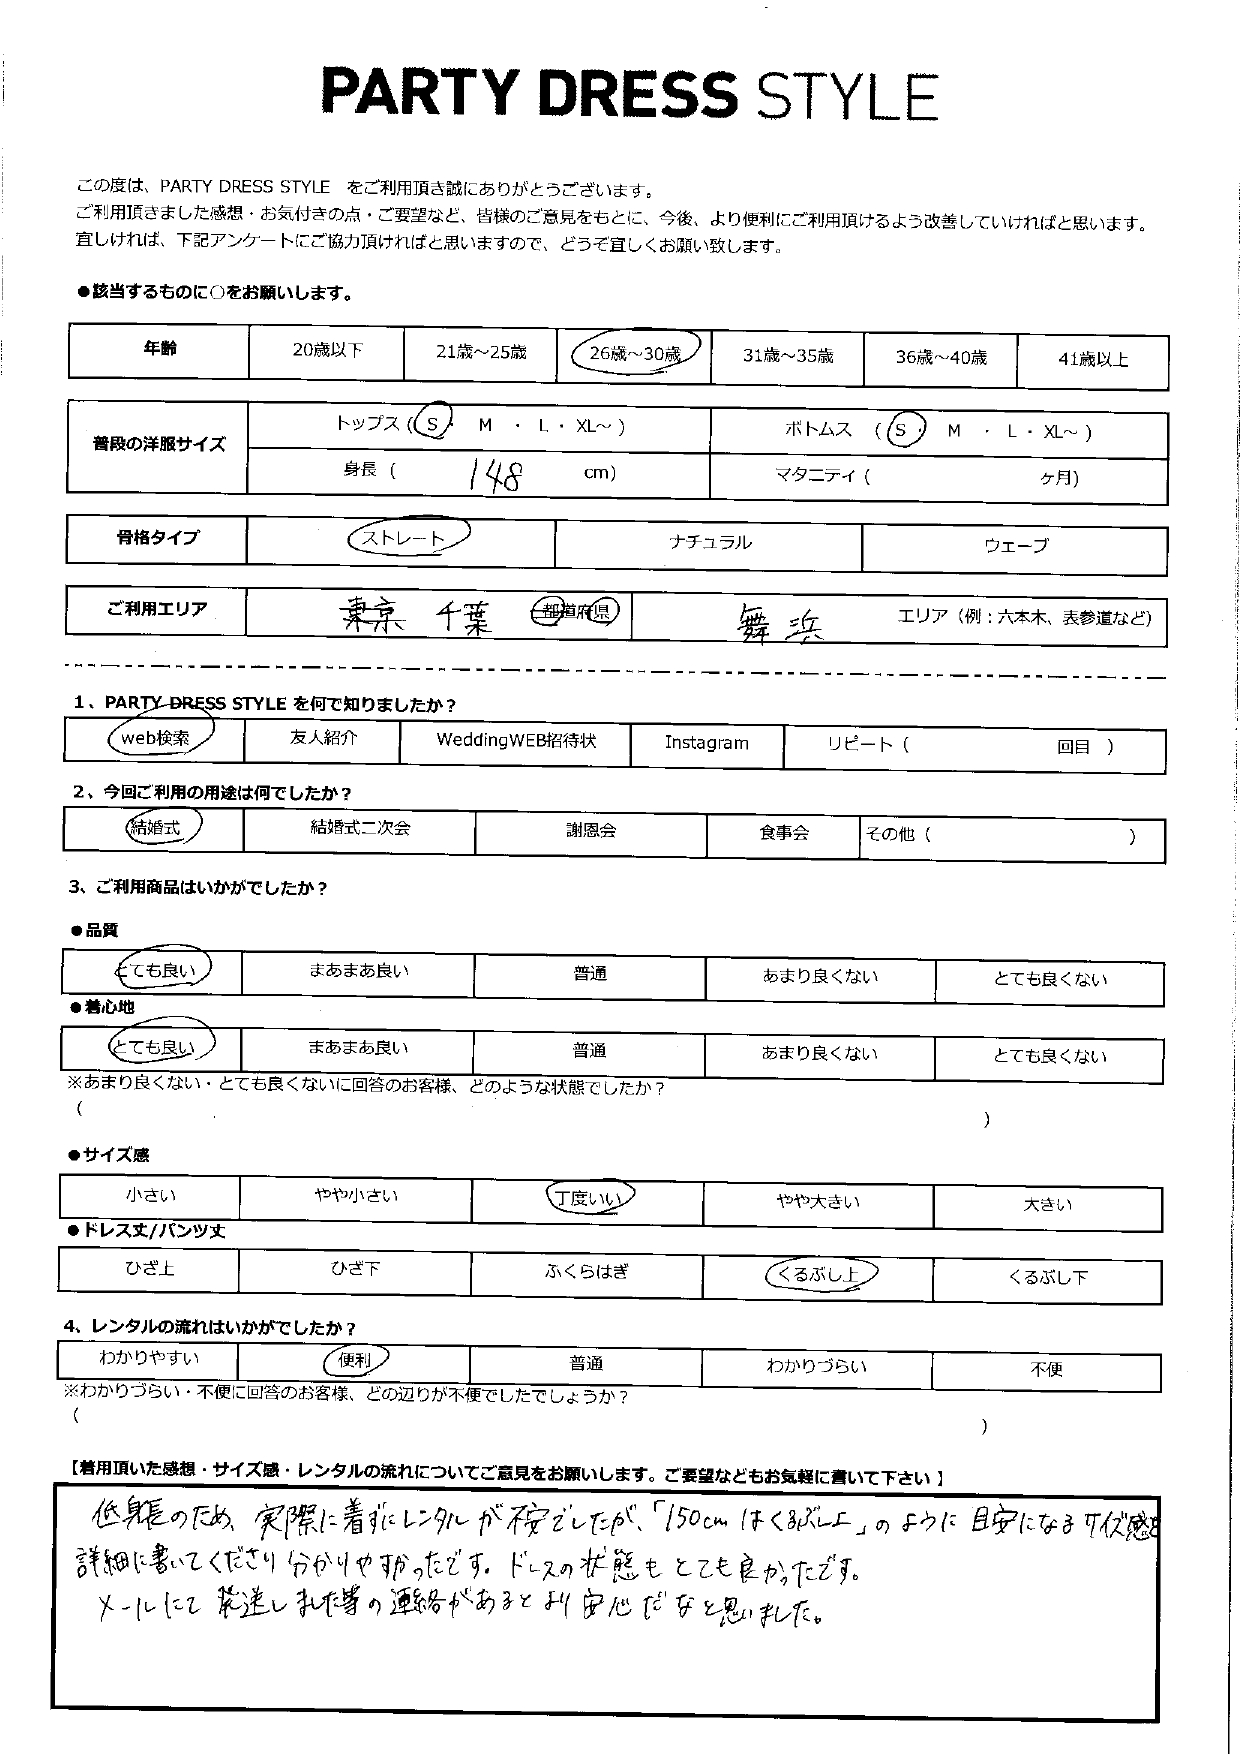 PARTY DRESS STYLE
この度は、PARTY DRESS STYLE をご利用頂き誠にありがとうございます。
ご利用頂きました感想・お気付きの点・ご要望など、皆様のご意見をもとに、今後、より便利にご利用頂けるよう改善していければと思います。
宜しければ、下記アンケートにご協力頂ければと思いますので、どうぞ宜しくお願い致します。
●該当するものに○をお願いします。
年齢 20歳以下 21歳～25歳 26歳～30歳 31歳～35歳 36歳～40歳 41歳以上
普段の洋服サイズ トップス (S・ M ・ L・ XL～ ) ボトムス (S・ M ・ L・ XL～ )
身長 ( 148 cm) マタニティ ( ヶ月)
骨格タイプ ストレート ナチュラル ウェーブ
ご利用エリア 東京 千葉 都道府県 舞浜 エリア（例：六本木、表参道など）
1、PARTY DRESS STYLE を何で知りましたか？
web検索 友人紹介 WeddingWEB招待状 Instagram リピート ( 回目 )
2、今回ご利用の用途は何でしたか？
結婚式 結婚式二次会 謝恩会 食事会 その他 ( )
3、ご利用商品はいかがでしたか？
●品質
とても良い まあまあ良い 普通 あまり良くない とても良くない
●着心地
とても良い まあまあ良い 普通 あまり良くない とても良くない
※あまり良くない・とても良くないに回答のお客様、どのような状態でしたか？
( )
●サイズ感
小さい やや小さい 丁度いい やや大きい 大きい
●ドレス丈/パンツ丈
ひざ上 ひざ下 ふくらはぎ くるぶし上 くるぶし下
4、レンタルの流れはいかがでしたか？
わかりやすい 便利 普通 わかりづらい 不便
※わかりづらい・不便に回答のお客様、どの辺りが不便でしたでしょうか？
( )
【着用頂いた感想・サイズ感・レンタルの流れについてご意見をお願いします。ご要望などもお気軽に書いて下さい】
低身長のため、実際に着ずにレンタルが不安でしたが、「150cmはくるぶし上」のように目安になるサイズ感を
詳細に書いてくださり分かりやすかったです。ドレスの状態もとても良かったです。
メールにて発送しました等の連絡があるとより安心だなと思いました。